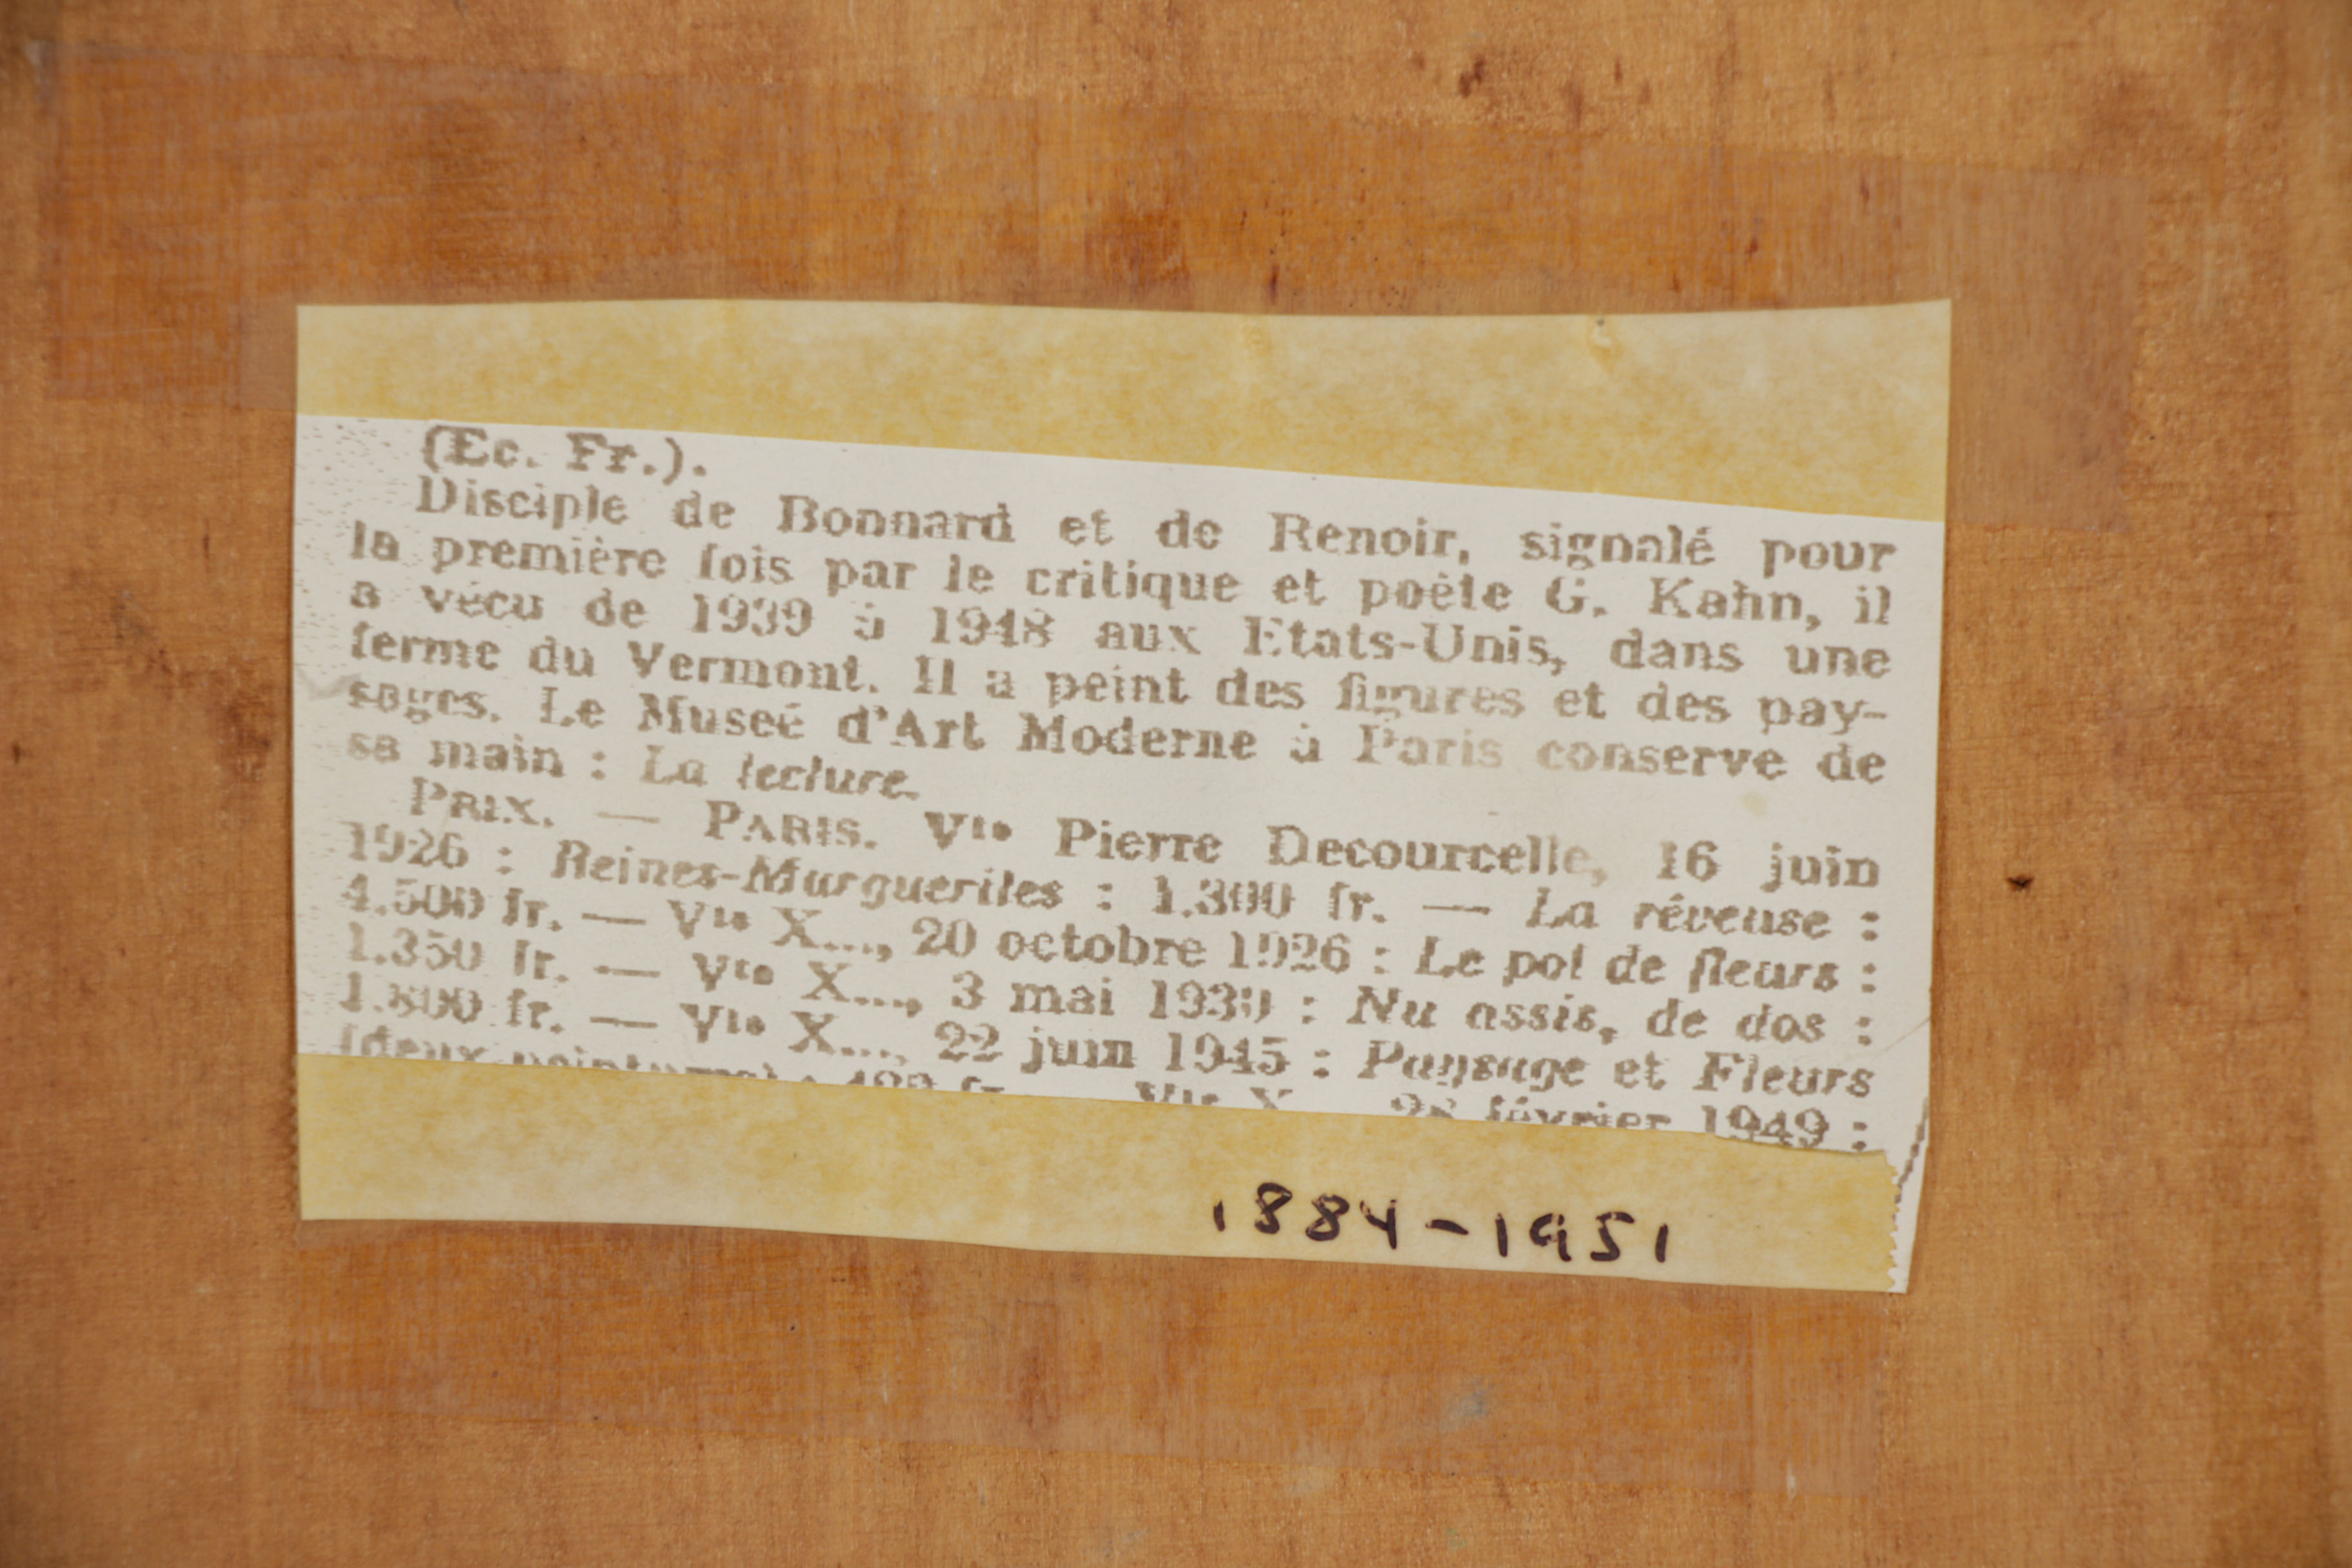 (Ec. Fr.).
Disciple de Bonnard et de Renoir, signalé pour
la première fois par le critique et poète G. Kahn, il
a vécu de 1939 à 1948 aux Etats-Unis, dans une
ferme du Vermont. Il a peint des figures et des pay-
sages. Le Museé d'Art Moderne à Paris conserve de
sa main : La lecture.
PRIX. — PARIS. Vte Pierre Decourcelle, 16 juin
1926 : Reines-Marguerites : 1.300 fr. — La rêveuse :
4.500 fr. — Vte X..., 20 octobre 1926 : Le pot de fleurs :
1.350 fr. — Vte X..., 3 mai 1939 : Nu assis, de dos :
fr. — Vte X..., 22 juin 1945 : Paysage et Fleurs
(deux fr. — Vte X février 1949 :
1884-1951